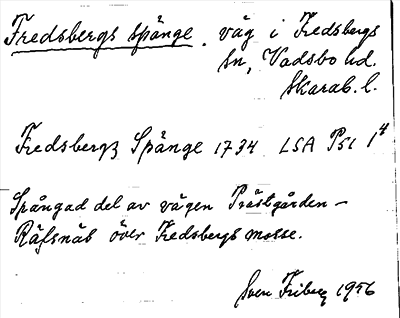 Fredsbergs spänge. väg i Fredsbergs
sn, Vadsbo hd.
Skarab. l.
Fredsbergz Spänge 1734 LSA P51 1⁴
Spångad del av vägen Prästgården –
Räfsnäs över Fredsbergs mosse.
Sven Friberg 1956